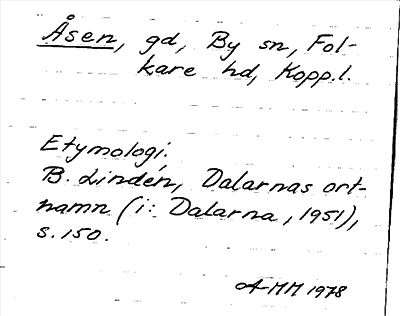 Åsen, gd, By sn, Fol-
kare hd, Kopp.l.
Etymologi.
B. Lindén, Dalarnas ort-
namn (i: Dalarna, 1951),
s. 150.
A-MM 1978